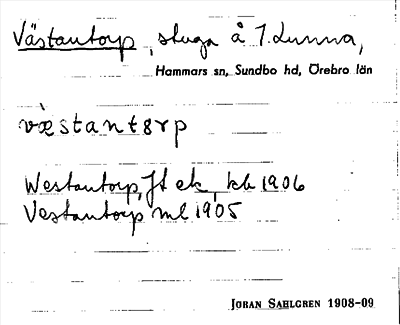 Västantorp, stuga å J. Lunna,
Hammars sn, Sundbo hd, Örebro län
væ̀stantɞrp
Westantorp, Jt ek, kb 1906
Vestantorp ml 1905
JÖRAN SAHLGREN 1908-09